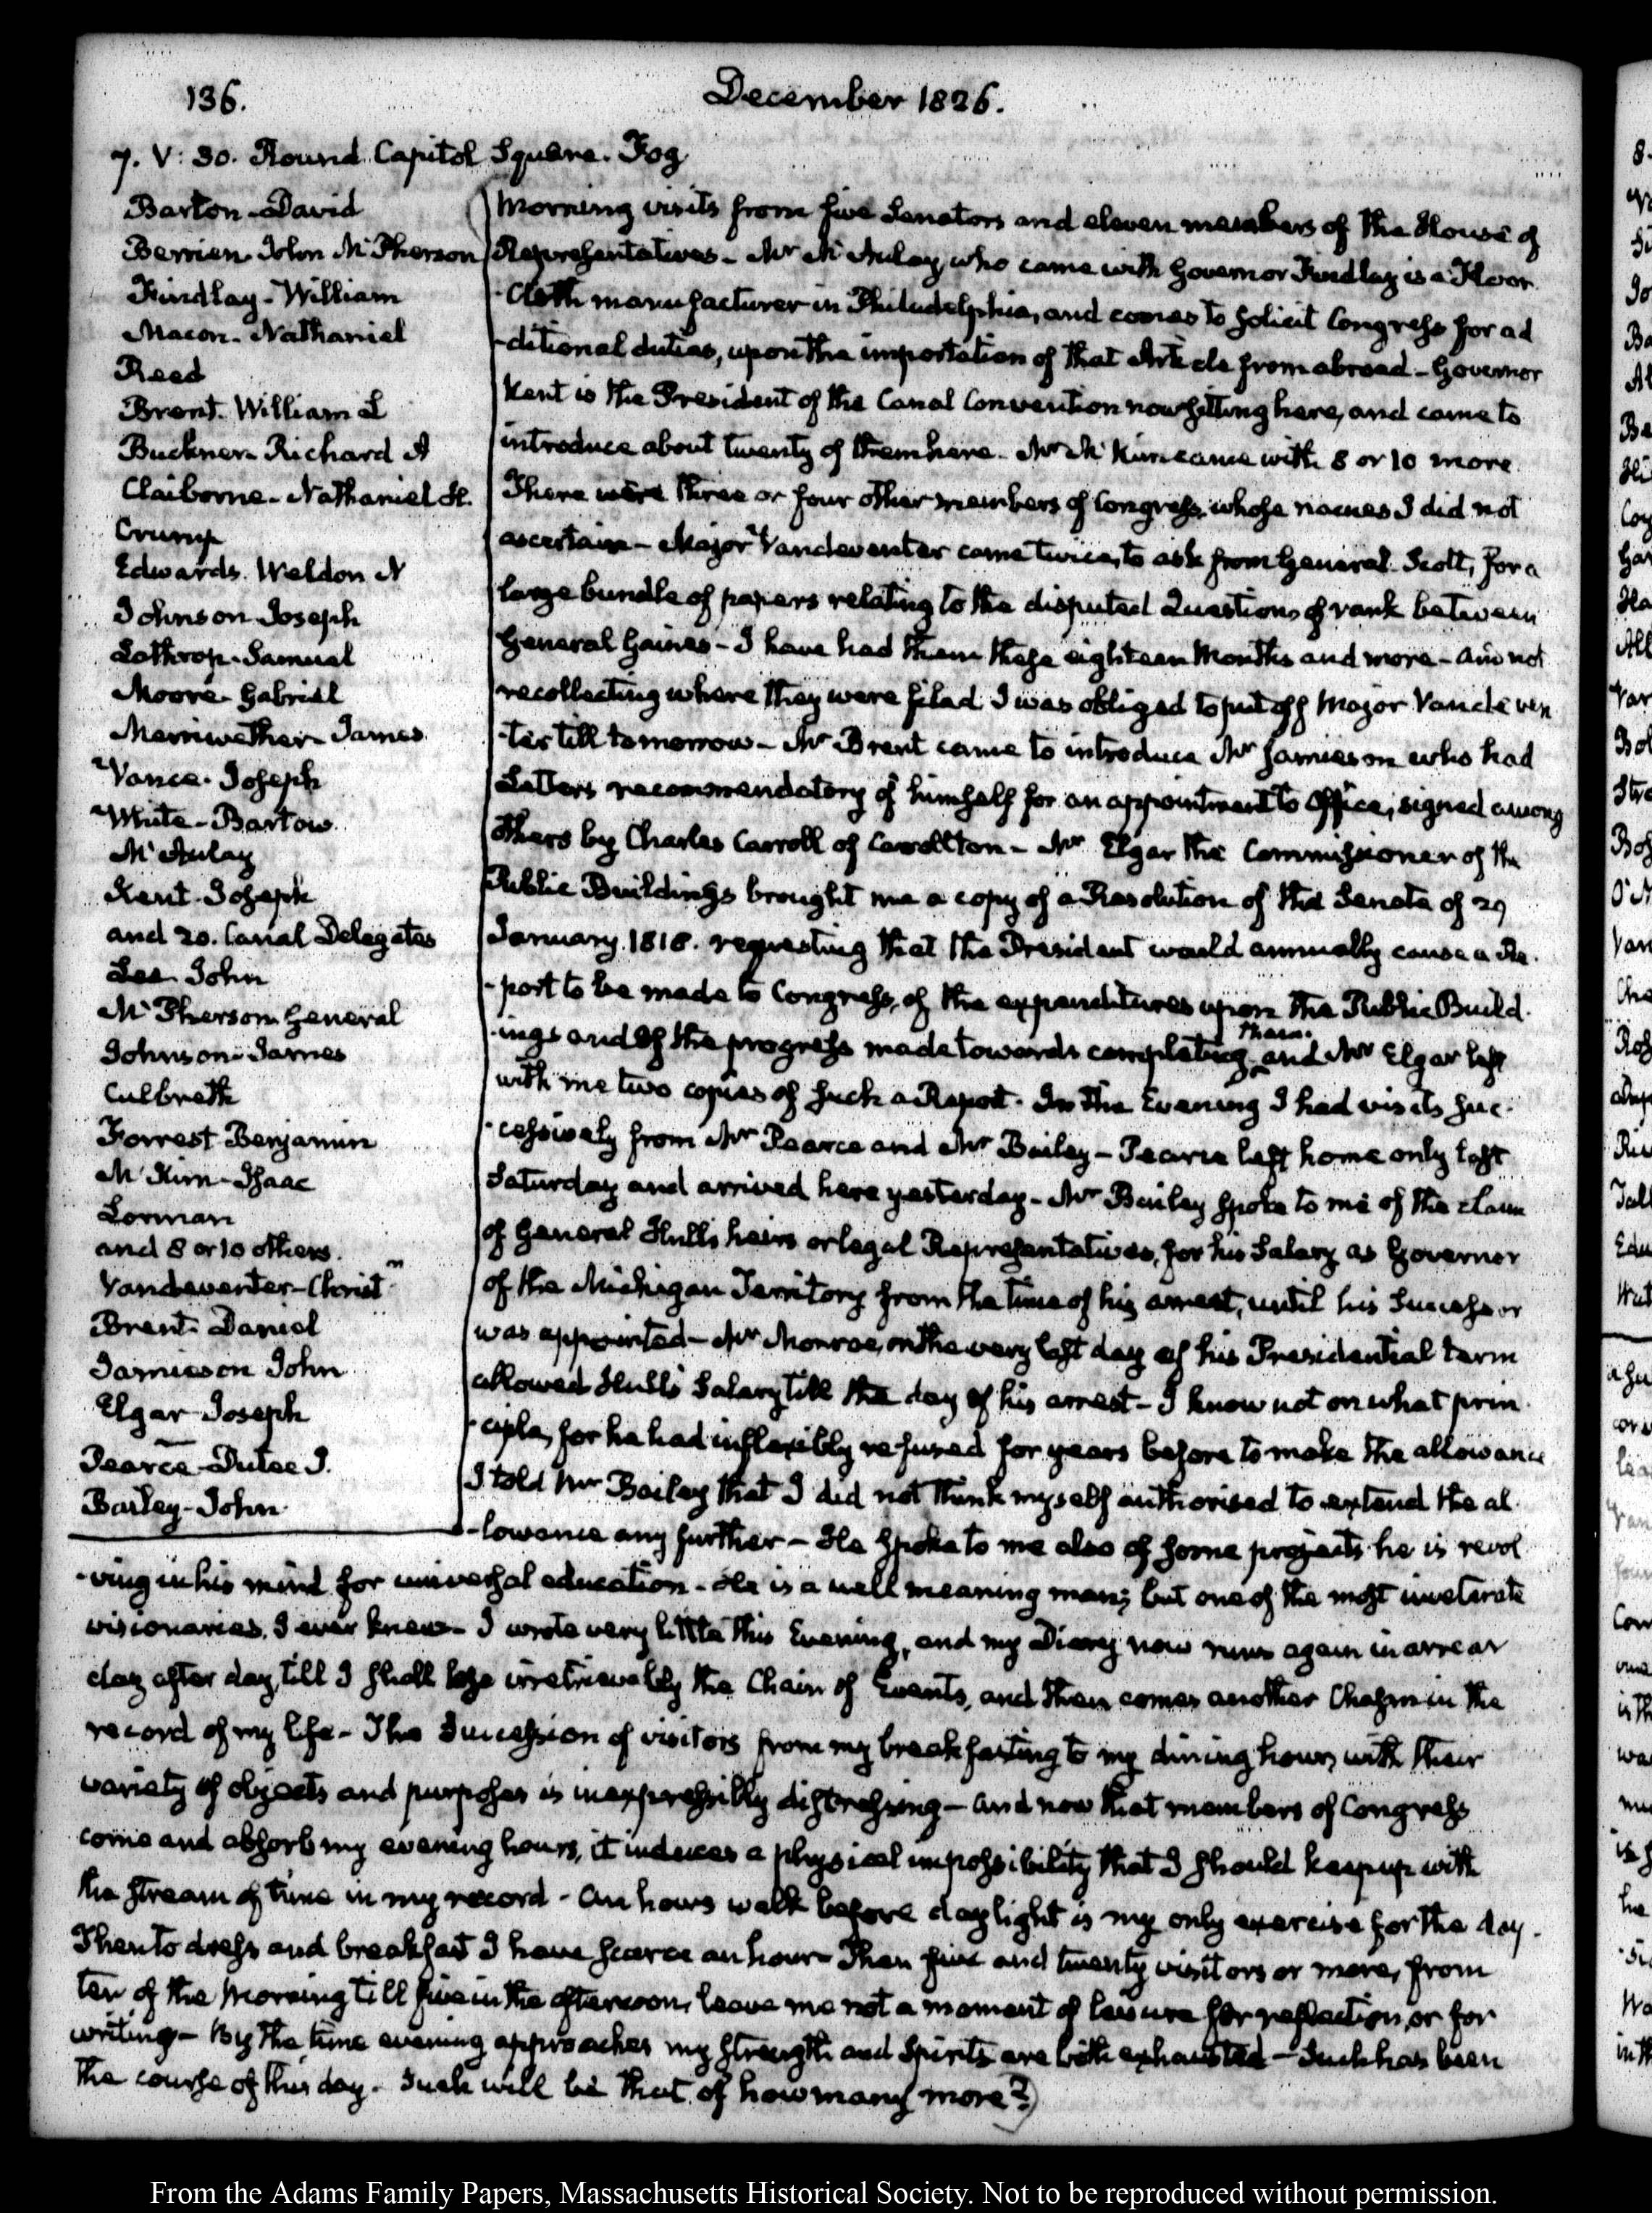 136.
December 1826.
7. V: 30. Round Capitol Square. Fog
Barton-David
Berrien-John McPherson
Findlay-William
Macon-Nathaniel
Reed
Brent-William L
Buckner-Richard A
Claiborne-Nathaniel H.
Crump
Edwards. Weldon N
Johnson-Joseph
Lathrop-Samuel
Moore-Gabriel
Merriwether-James
Vance-Joseph
White-Bartow
McAulay
Kent-Joseph
and 20. Canal Delegates
Lee-John
McPherson General
Johnson-James
Culbreth
Forrest Benjamin
McKim-Isaac
Lorman
and 8 or 10 others.
Vandeventer-Christr
Brent-Daniel
Jamieson John
Elgar-Joseph
Pearce-Dutee J.
Bailey-John
Morning visits from five Senators and eleven members of the House of
Representatives - Mr McAulay, who came with Governor Findlay is a Floor
-Cloth manufacturer in Philadelphia, and comes to solicit Congress for ad
-ditional duties, upon the importation of that Article from abroad - Governor
Kent is the President of the Canal Convention now sitting here, and came to
introduce about twenty of them here. Mr McKim came with 8 or 10 more
There were three or four other members of Congress, whose names I did not
ascertain - Major Vandeventer came twice, to ask from General Scott, for a
large bundle of papers relating to the disputed Questions of rank between
General Gaines - I have had them these eighteen Months and more - and not
recollecting where they were filed I was obliged to put off Major Vandeven
-ter till tomorrow - Mr Brent came to introduce Mr Jamieson who had
Letters recommendatory of himself for an appointment to Office, signed among
others by Charles Carroll of Carrollton - Mr Elgar the Commissioner of the
Public Buildings brought me a copy of a Resolution of the Senate of 29
January 1818. requesting that the President would annually cause a Re-
-port to be made to Congress, of the expenditures upon the Public Build-
-ings and of the progress made towards completing them. and Mr Elgar left
with me two copies of such a Report. In the Evening I had visits suc-
-cessively from Mr Pearce and Mr Bailey - Pearce left home only last
Saturday and arrived here yesterday - Mr Bailey spoke to me of the claim
of General Hull's heirs or legal Representatives, for his Salary as Governor
of the Michigan Territory from the time of his arrest, until his Successor
was appointed - Mr Monroe, on the very last day of his Presidential term
allowed Hull's Salary till the day of his arrest - I know not on what prin-
-ciple, for he had inflexibly refused for years before to make the allowance
I told Mr Bailey that I did not think myself authorised to extend the al-
-lowance any further - He spoke to me also of some projects he is revol
-ving in his mind for universal education - He is a well meaning man; but one of the most inveterate
visionaries, I ever knew - I wrote very little this Evening, and my Diary now runs again in arrear
day after day, till I shall lose irretrievably the Chain of Events, and then comes another Chasm in the
record of my life - The Succession of visitors from my breakfasting to my dining hour, with their
variety of objects and purposes is inexpressibly distressing - and now that members of Congress
come and absorb my evening hours, it induces a physical impossibility that I should keep up with
the stream of time in my record - An hours walk before daylight is my only exercise for the day.
Then to dress and breakfast I have scarce an hour - Then five and twenty visitors or more, from
ten of the Morning till five in the afternoon, leave me not a moment of leisure for reflection, or for
writing - By the time evening approaches my strength and Spirits are both exhausted - Such has been
the course of this day. Such will be that of how many more?)
From the Adams Family Papers, Massachusetts Historical Society. Not to be reproduced without permission.